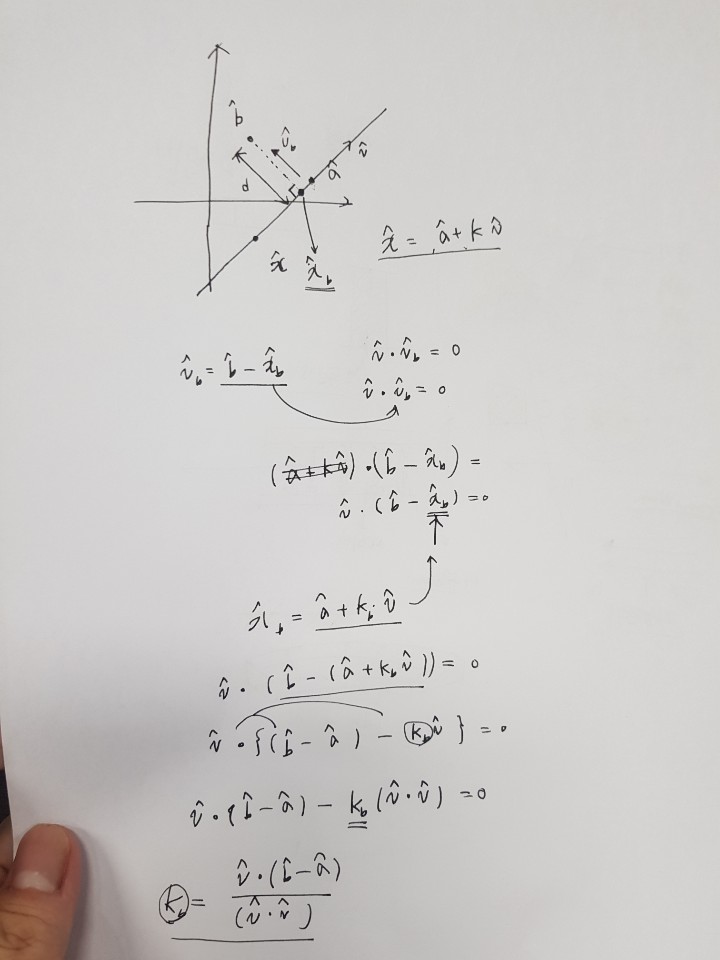 b̂
v̂_b
v̂
â
d
x̂ x̂_b
x̂ = â + k v̂
v̂_b = b̂ - x̂_b
v̂ · v̂_b = 0
v̂ · v̂_b = 0
(â + k v̂) · (b̂ - x̂_b) =
v̂ · (b̂ - x̂_b) = 0
x̂_b = â + k_b · v̂
v̂ · (b̂ - (â + k_b v̂)) = 0
v̂ · {(b̂ - â) - k_b v̂} = 0
v̂ · (b̂ - â) - k_b (v̂ · v̂) = 0
k_b = v̂ · (b̂ - â) / (v̂ · v̂)